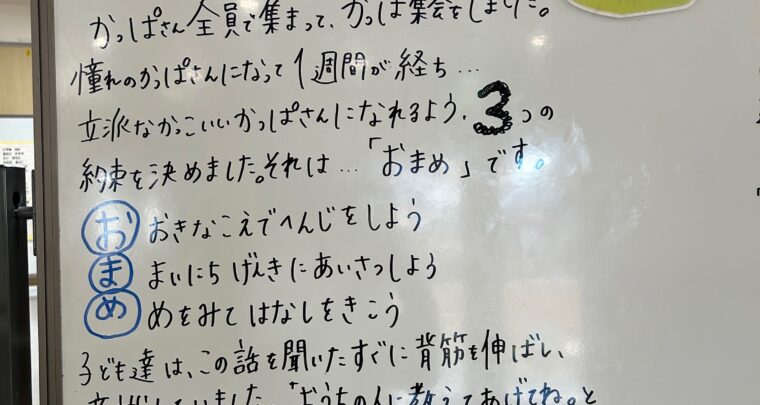 かっぱさん全員で集まって、かっぱ集会をしました。
憧れのかっぱさんになって1週間が経ち…
立派なかっこいいかっぱさんになれるよう、3つの
約束を決めました。それは…「おまめ」です。
お おきなこえでへんじをしよう
ま まいにちげんきにあいさつしよう
め めをみてはなしをきこう
子ども達は、この話を聞いたすぐに背筋を伸ばし、
「おうちの人に教えてあげてね。と